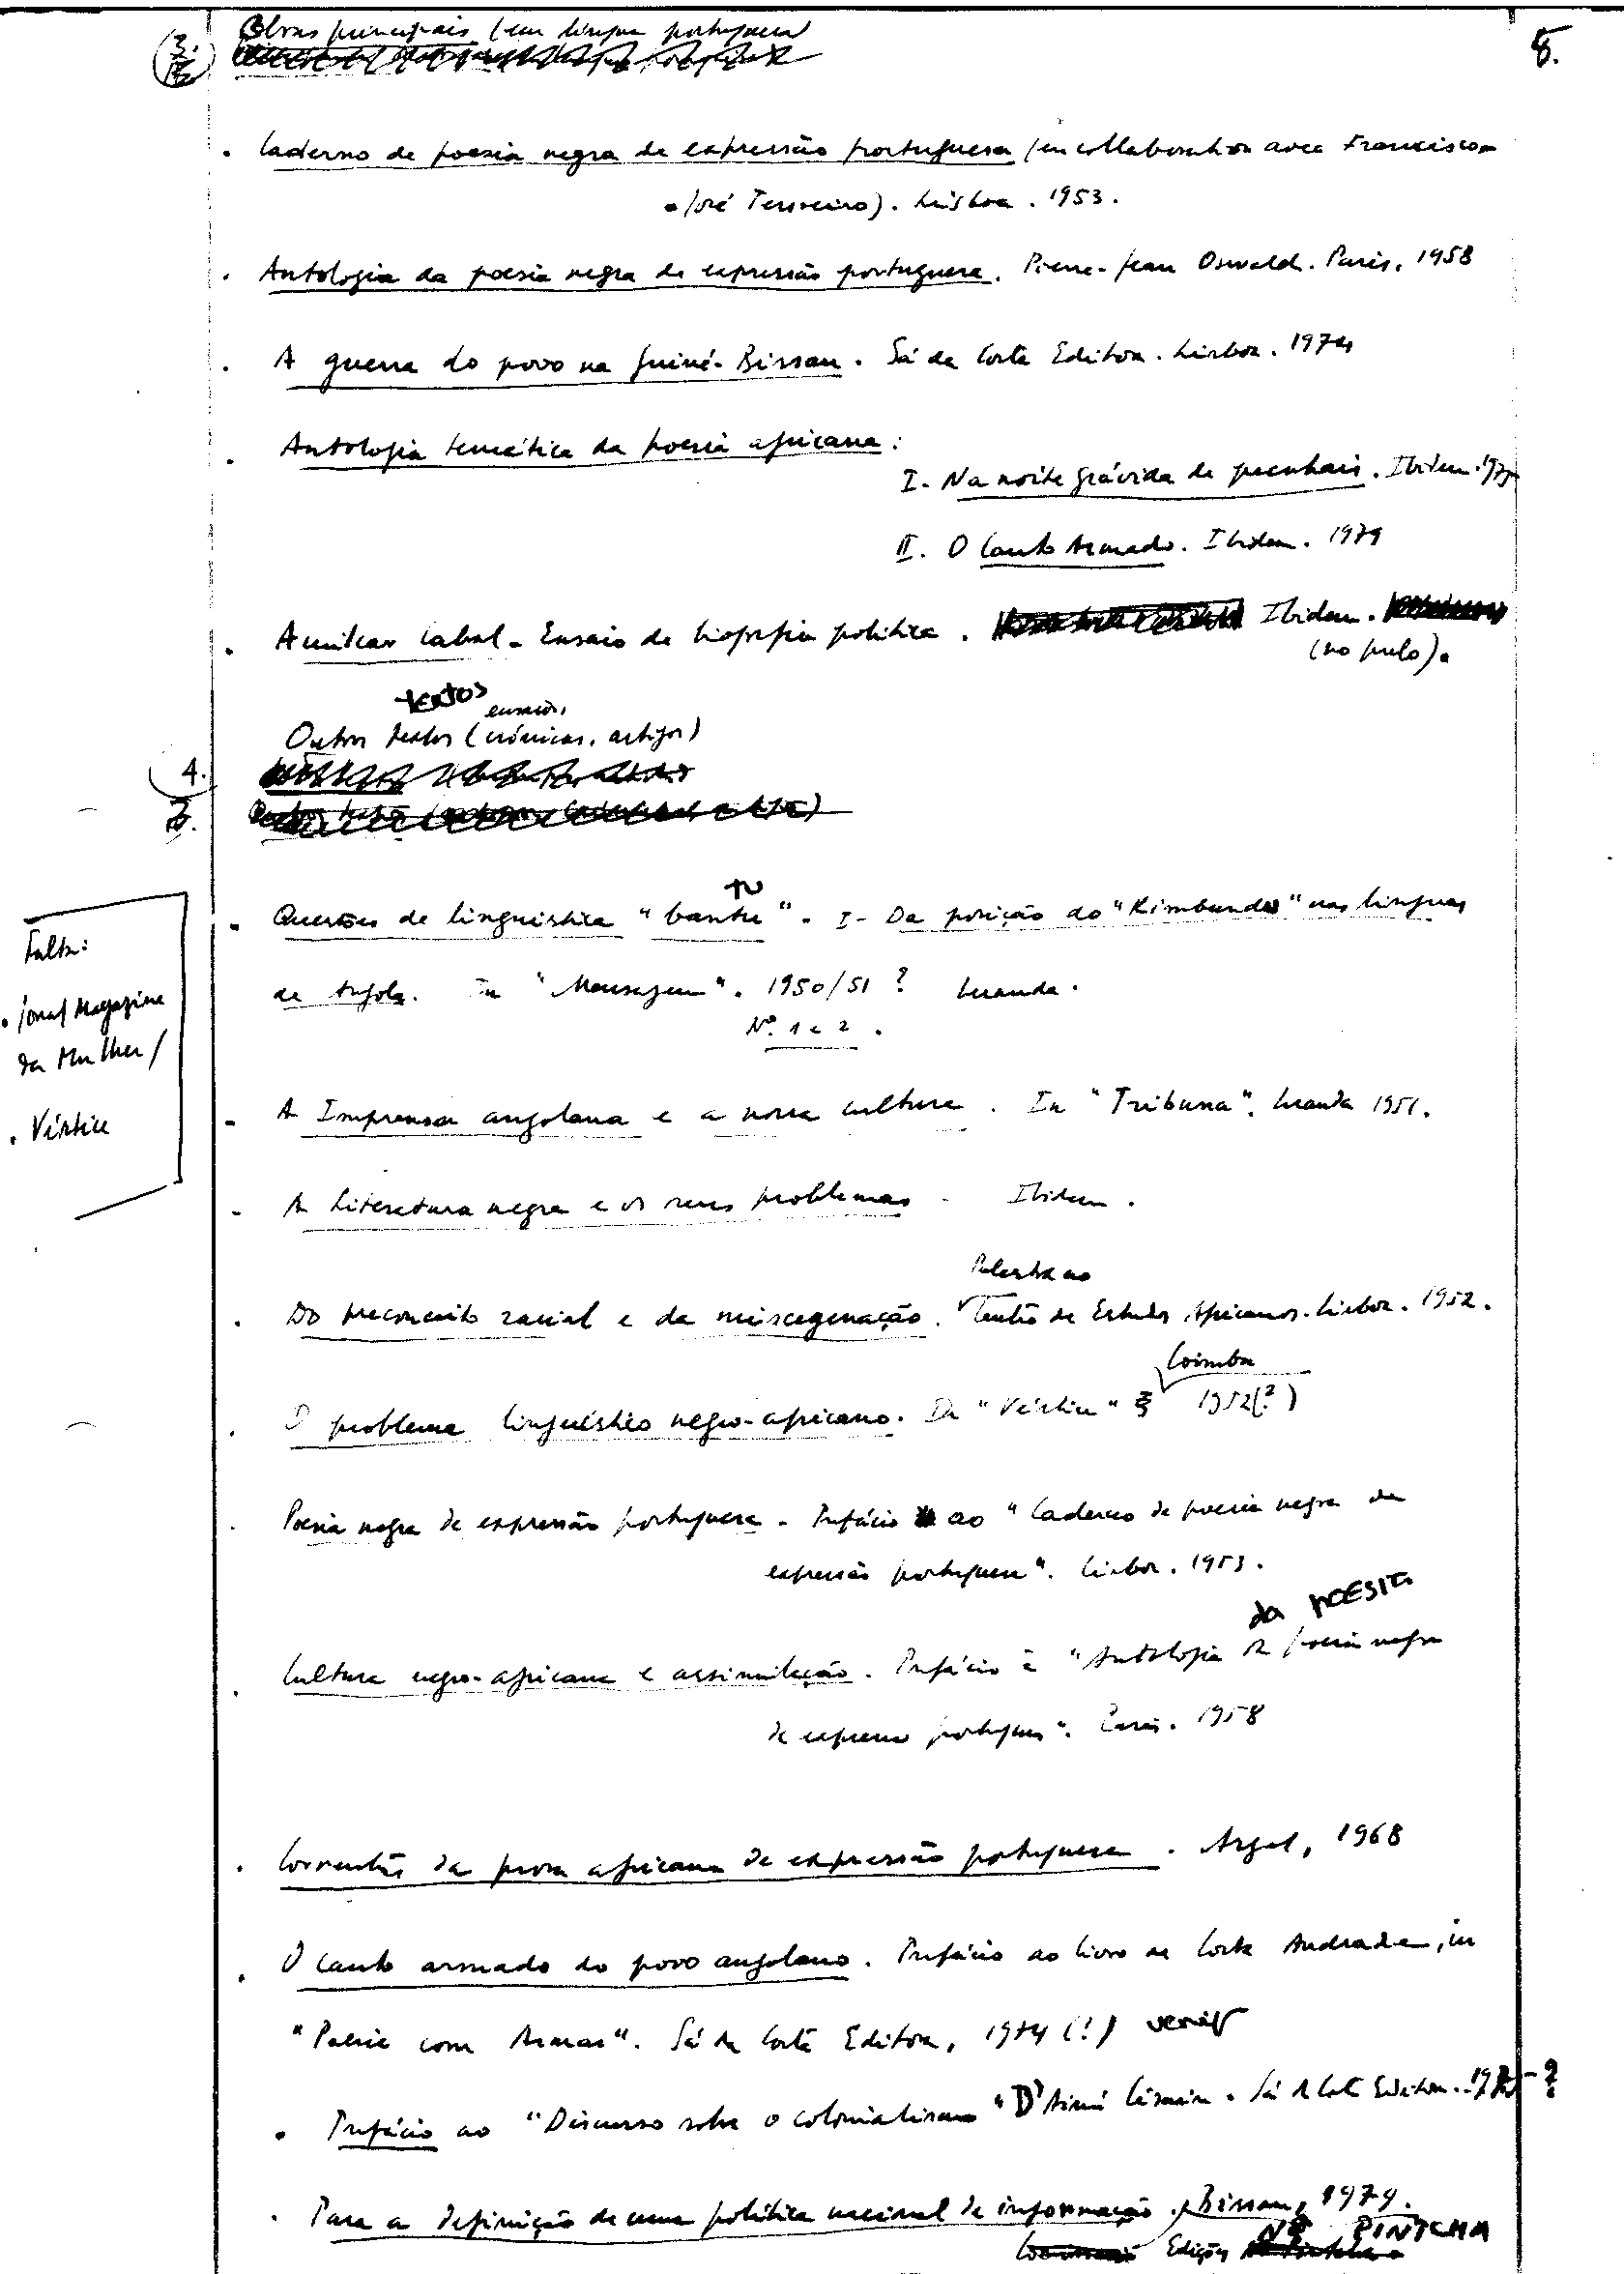 Obras principais (em língua portuguesa)
3.
5.
. Caderno de poesia negra de expressão portuguesa (en collaboration avec Francisco
José Tenreiro). Lisboa. 1953.
. Antologia da poesia negra de expressão portuguesa. Pierre-Jean Oswald. Paris. 1958
. A guerra do povo na Guiné-Bissau. Sá da Costa Editora. Lisboa. 1974
. Antologia temática da poesia africana:
I - Na noite grávida de punhais. Ibidem.
II. O Canto Armado. Ibidem. 1979
. Amílcar Cabral - Ensaio de biografia política. Ibidem.
(no prelo).
textos
ensaios,
Outros textos (crónicas, artigos)
4.
- Questões de linguística "bantu". I - Da posição do "Kimbundu" nas línguas
tu
de Angola. In "Mensagem". 1950/51 ? Luanda.
Nº. 1 e 2.
Falta:
. Jornal Magazine
da Mulher/
. Vértice
- A Imprensa angolana e a nossa cultura. In "Tribuna". Luanda 1951.
- A Literatura negra e os seus problemas - Ibidem.
Palestra ao
. Do preconceito racial e da miscegenação. Centro de Estudos Africanos. Lisboa. 1952.
Coimbra
. O problema linguístico negro-africano. In "Vértice" 1952(?)
. Poesia negra de expressão portuguesa - Prefácio ao "Caderno de poesia negra de
expressão portuguesa". Lisboa. 1953.
da POESIA
. Cultura negro-africana e assimilação. Prefácio à "Antologia da poesia negra
de expressão portuguesa". Paris. 1958
. Correntes da prosa africana de expressão portuguesa. Argel, 1968
. O canto armado do povo angolano. Prefácio ao livro de Costa Andrade, in
"Poesia com Armas". Sá da Costa Editora, 1974 (?) verif
. Prefácio ao "Discurso sobre o colonialismo" D'Aimé Césaire. Sá da Costa Editora. - ?
. Para a definição de uma política nacional de informação. Bissau, 1979.
Edições Nô PINTCHA